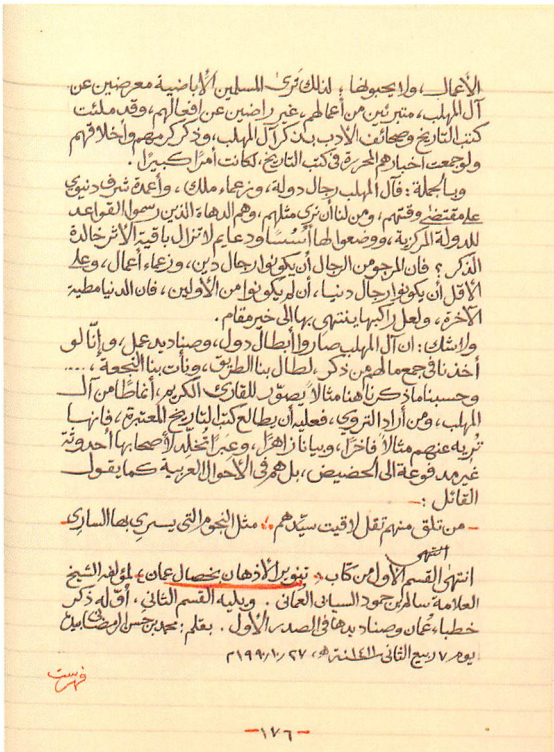 الأعمال، ولا يحبونها؛ لذلك ترى المسلمين الأباضية معرضين عن
آل المهلب، متبرئين من أعمالهم، غير راضين عن افعالهم، وقد ملئت
كتب التاريخ وصحائف الادب بذكر آل المهلب، وذكر كرمهم وأخلاقهم
ولو جمعت اخبارهم المحررة في كتب التاريخ، لكانت أمرًا كبيرًا.
وبالجملة: فآل المهلب رجال دولة، وزعماء ملك، وأعدة شرف دنيوي
على مقتضى وقتهم، ومن لنا أن نرى مثلهم، وهم الدهاة الذين رسموا القواعد
للدولة المركزية، ووضعوا لها أسُسًا ودعايم لا تزال باقية الأثر خالدة
الذكر؟ فان المرجو من الرجال أن يكونوا رجال دين، وزعماء أعمال، وعلى
الأقل أن يكونوا رجال دنيا، أن لم يكونوا من الأولين، فان الدنيا مطية
الآخرة، ولعل راكبها ينتهي بها الى خير مقام.
ولا شك: ان آل المهلب صاروا أبطال دول، وصناديد عمل، وإنّا لو
أخذنا في جمع ما لهم من ذكر، لطال بنا الطريق، ونأت بنا النجعة، ....
وحسبنا ما ذكرنا هنا مثالاً يصوّر للقارئ الكريم، أنماطًا من آل
المهلب، ومن أراد التروي، فعليه أن يطالع كتب التاريخ المعتبرة، فانها
تُريه عنهم مثالاً فاخرًا، وبيانا زاهرًا، وعبرًا تخلّد لأصحابها أحدوثة
غير مدفوعة الى الحضيض، بل هم في الأحوال العربية كما يقول
القائل :-
- من تلق منهم تقل لاقيت سيّدهم ؛ مثل النجوم التي يسري بها الساري -
انتهى
انتهى القسم الأول من كتاب «تنوير الأذهان بخصال عمان» لمؤلفه الشيخ
العلامة سالم بن حمود السيابي العماني. ويليه القسم الثاني، أوّله ذكر
خطباء عُمان وصناديدها في الصدر الأول. بقلم: محمد بن حسن الرمضاني
يوم ٧ ربيع الثاني ١٤١١ سنة هـ، ٢٧/١٠/١٩٩٠م
فهرست
-١٧٦-